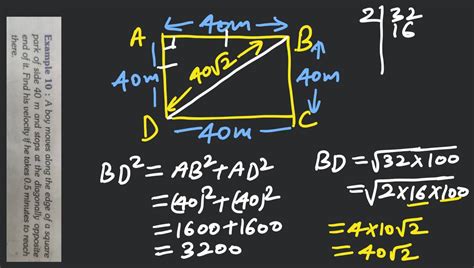 Example 10 : A boy moves along the edge of a square
park of side 40 m and stops at the diagonally opposite
end of it. Find his velocity if he takes 0.5 minutes to reach
there.
40m
A
B
40m
40√2
40m
D
C
40m
2 32
16
BD² = AB² + AD²
= (40)² + (40)²
= 1600 + 1600
= 3200
BD = √32 × 100
= √2 × 16 × 100
= 4 × 10√2
= 40√2